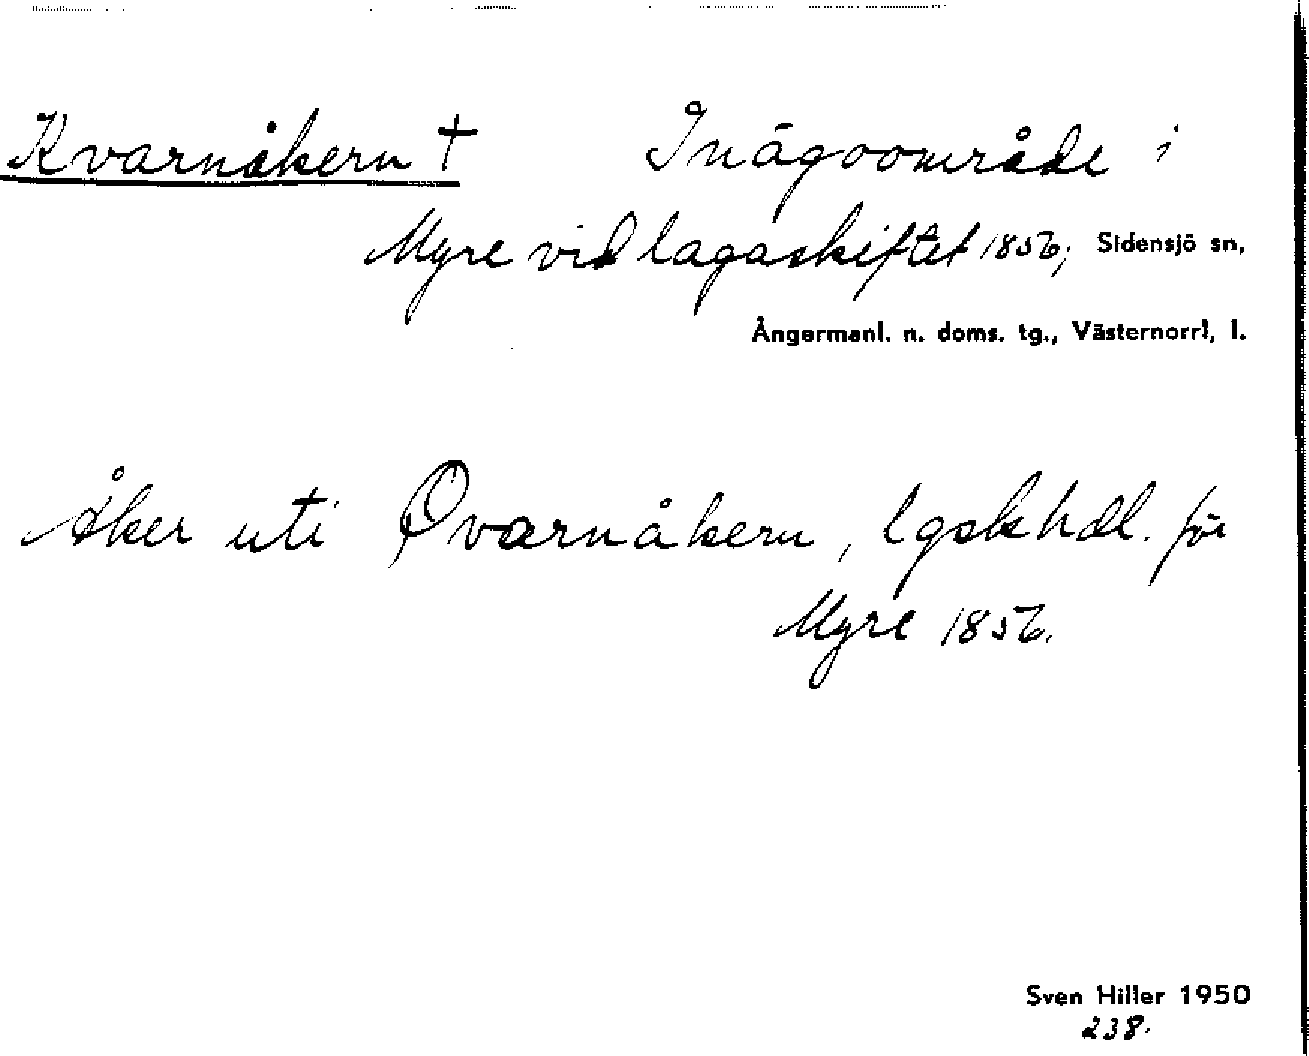 Kvarnåkern † Inägoområde i
Myre vid lagaskiftet 1856; Sidensjö sn,
Ångermanl. n. doms. tg., Västernorrl, l.
Åker uti Qvarnåkern, lgskhdl. för
Myre 1856.
Sven Hiller 1950
238.